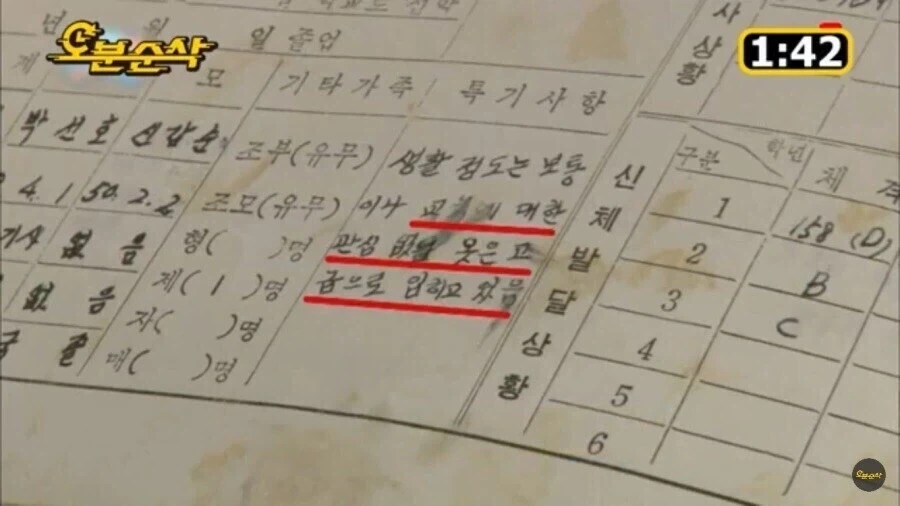 오분순삭
1:42
일 졸업
사상황
모 기타가족 특기사항
박선호 신갑순
4.1 50.2.2
없음
없음
조부(유무)
조모(유무)
형( )명
제( 1 )명
자( )명
매( )명
생활 정도는 보통
이나 대한
관심 옷은 고
급으로 입히고 있음
신체발달상황
구분 학년 체격
1 158 (D)
2 B
3 C
4
5
6
오분순삭